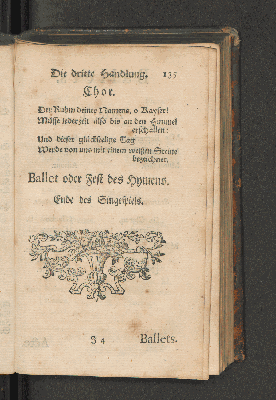 Die dritte Handlung. 135
Chor.
Der Ruhm deines Namens, o Kayser!
Müsse iederzeit also bis an den Himmel
erschallen:
Und dieser glückseelige Tag
Werde von uns mit einem weissen Steine
bezeichnet.
Ballet oder Fest des Hymens.
Ende des Singespiels.
J 4 Ballets.